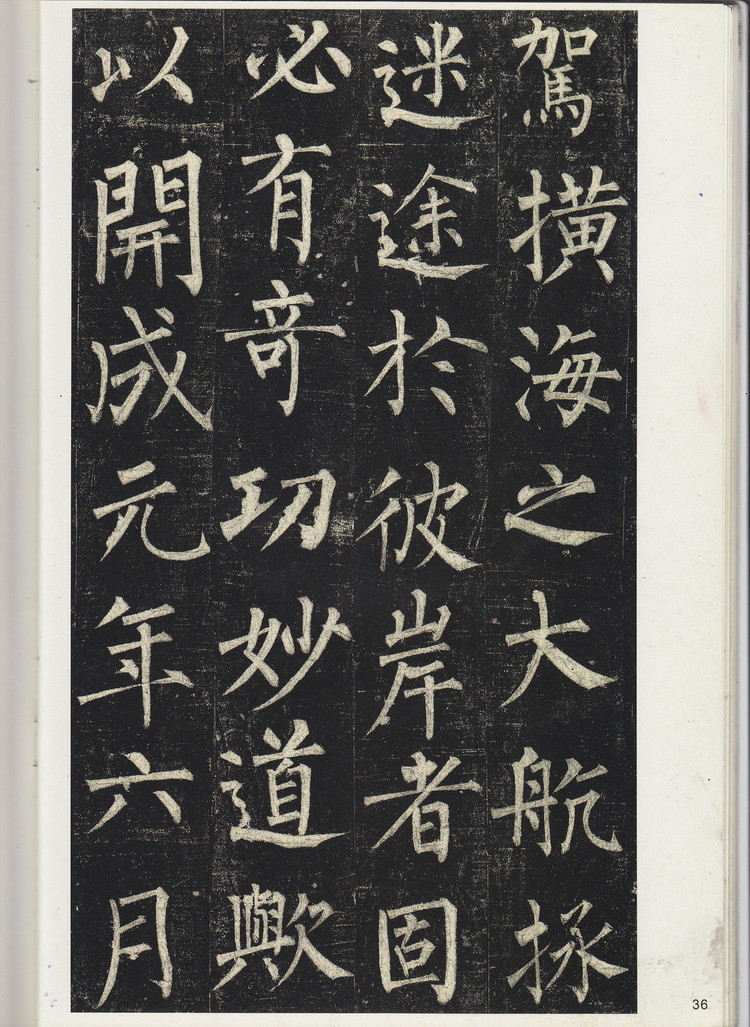 駕橫海之大航拯
迷途於彼岸者固
必有奇功妙道歟
以開成元年六月
36